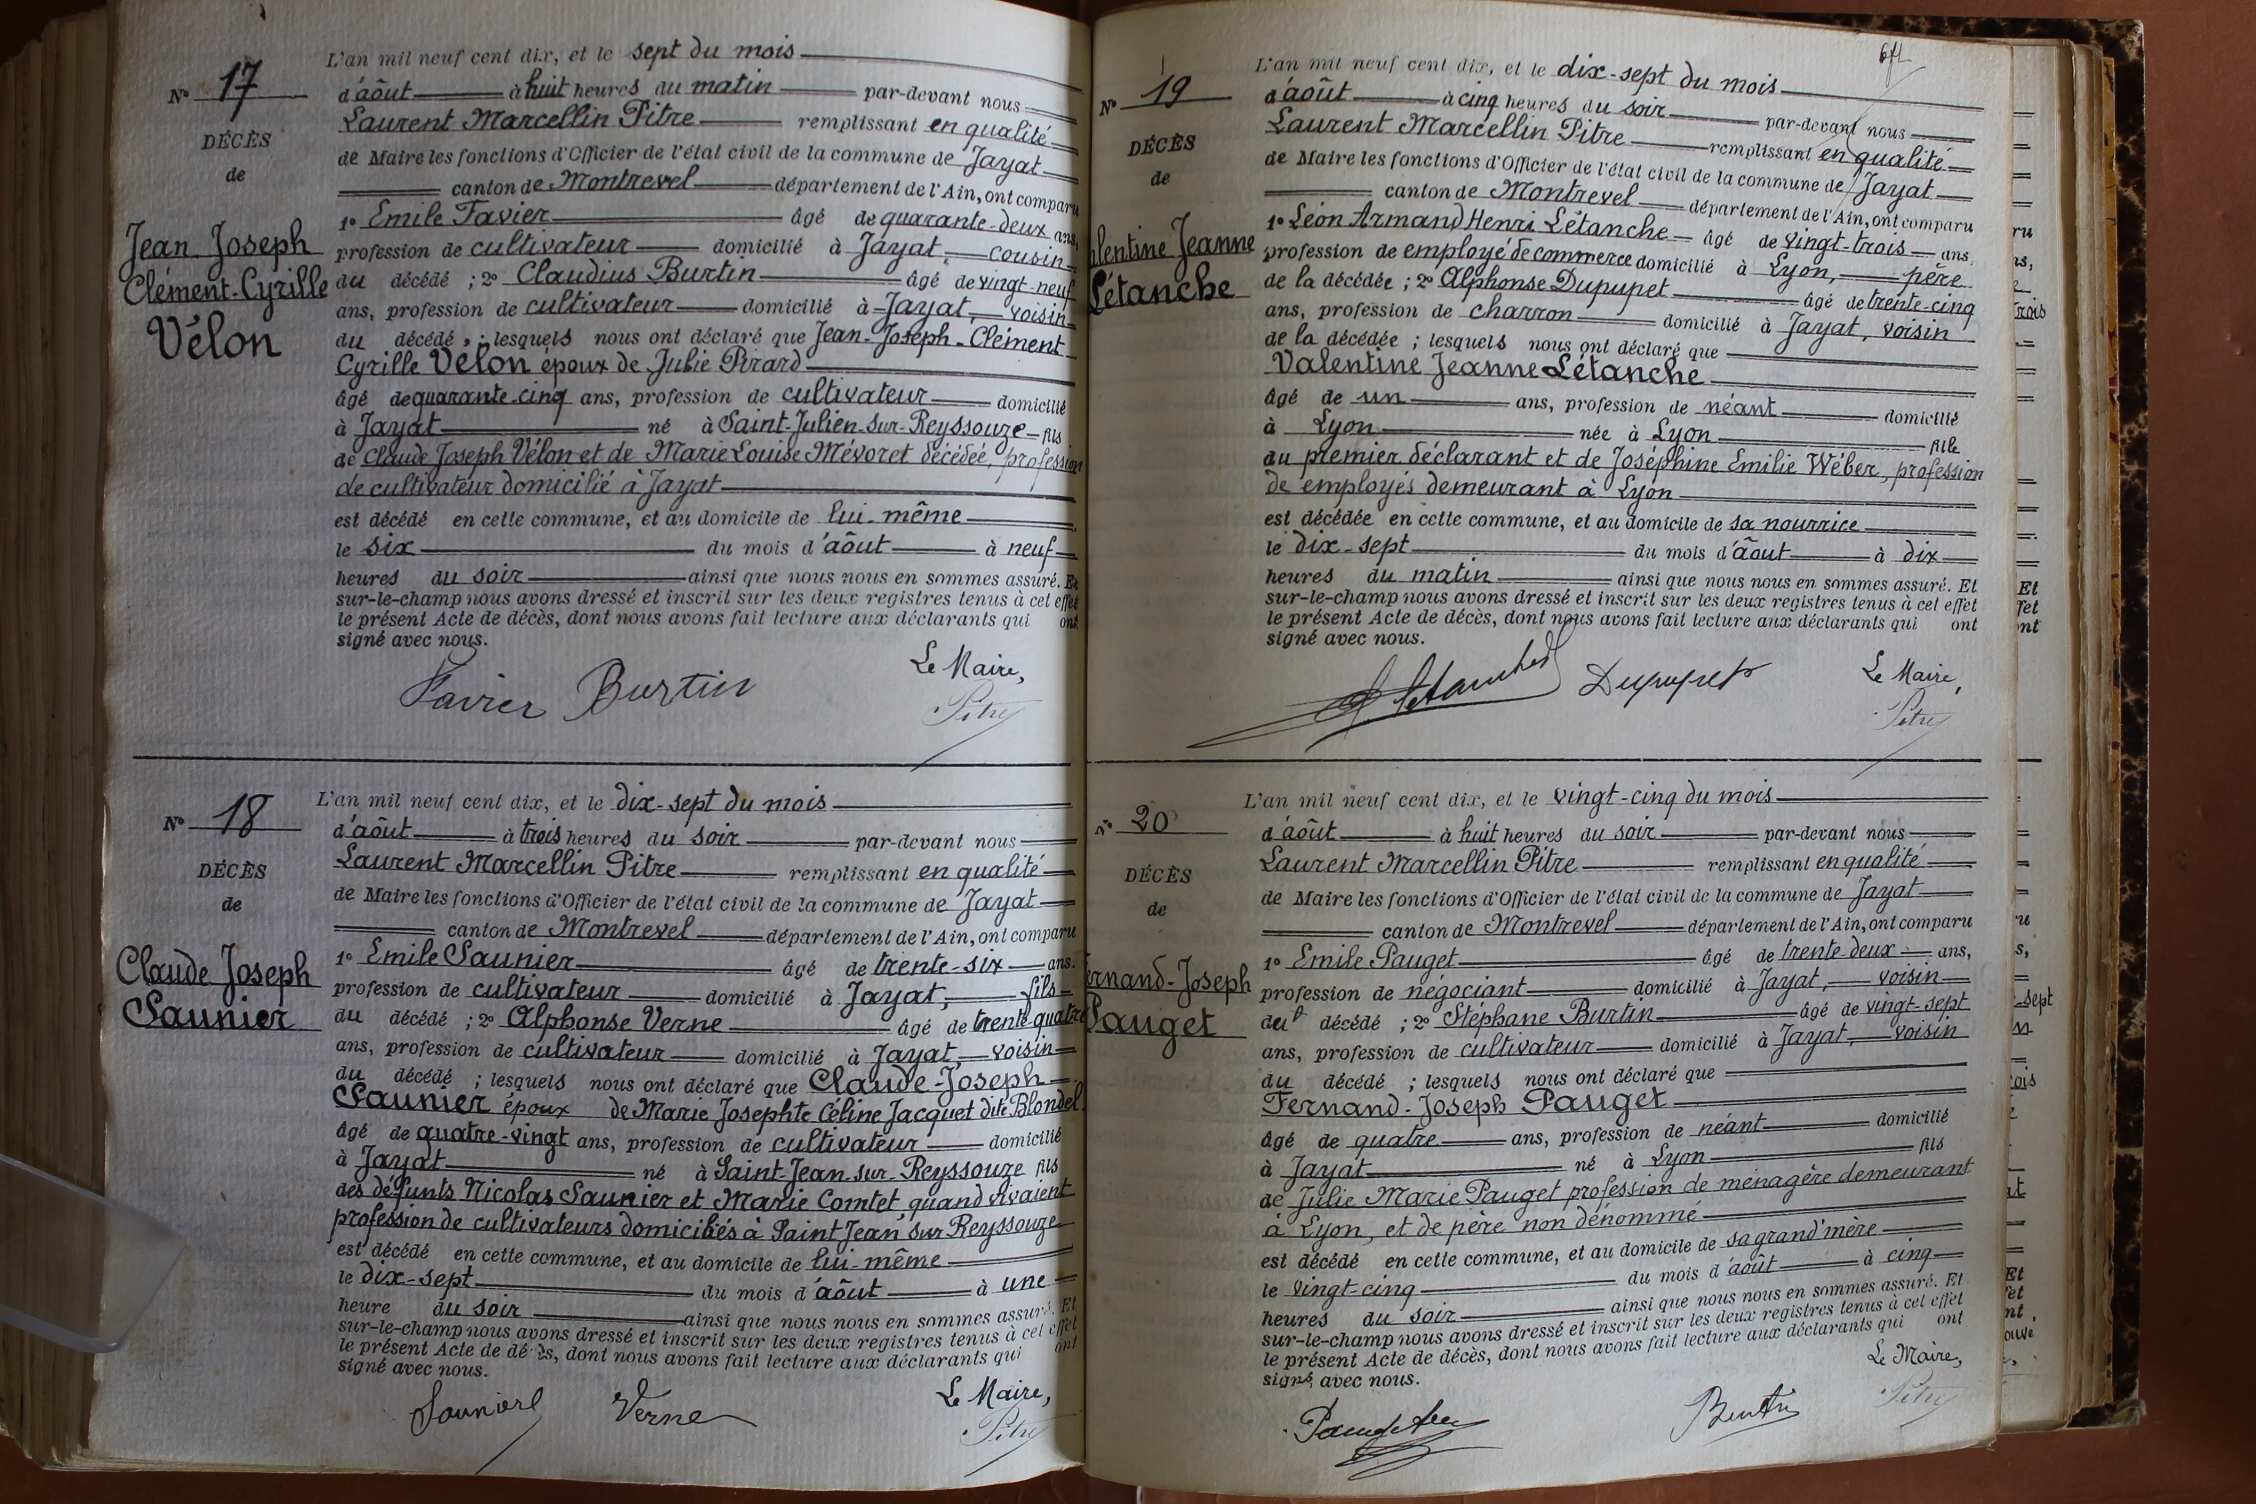 N° 17
DÉCÈS
de
Jean Joseph
Clément-Cyrille
Vélon
L'an mil neuf cent dix, et le sept du mois
d'août à huit heures du matin par-devant nous
Laurent Marcellin Pitre remplissant en qualité
de Maire les fonctions d'Officier de l'état civil de la commune de Jayat
canton de Montrevel département de l'Ain, ont comparu
1° Emile Favier âgé de quarante-deux ans,
profession de cultivateur domicilié à Jayat, cousin
du décédé ; 2° Claudius Burtin âgé de vingt-neuf
ans, profession de cultivateur domicilié à Jayat, voisin
du décédé ; lesquels nous ont déclaré que Jean-Joseph-Clément
Cyrille Vélon époux de Julie Pirard
âgé de quarante-cinq ans, profession de cultivateur domicilié
à Jayat né à Saint-Julien-sur-Reyssouze fils
de Claude Joseph Vélon et de Marie Louise Mévoret décédée, profession
de cultivateur domicilié à Jayat
est décédé en cette commune, et au domicile de lui-même
le six du mois d'août à neuf
heures du soir ainsi que nous nous en sommes assuré. Et
sur-le-champ nous avons dressé et inscrit sur les deux registres tenus à cet effet
le présent Acte de décès, dont nous avons fait lecture aux déclarants qui ont
signé avec nous.
Le Maire,
Favier Burtin Pitre
N° 18
DÉCÈS
de
Claude Joseph
Saunier
L'an mil neuf cent dix, et le dix-sept du mois
d'août à trois heures du soir par-devant nous
Laurent Marcellin Pitre remplissant en qualité
de Maire les fonctions d'Officier de l'état civil de la commune de Jayat
canton de Montrevel département de l'Ain, ont comparu
1° Emile Saunier âgé de trente-six ans.
profession de cultivateur domicilié à Jayat, fils
du décédé ; 2° Alphonse Verne âgé de trente-quatre
ans, profession de cultivateur domicilié à Jayat, voisin
du décédé ; lesquels nous ont déclaré que Claude-Joseph
Saunier époux de Marie Josephte Céline Jacquet dite Blondel
âgé de quatre-vingt ans, profession de cultivateur domicilié
à Jayat né à Saint-Jean-sur-Reyssouze fils
des défunts Nicolas Saunier et Marie Comtet, quand vivaient
profession de cultivateurs domiciliés à Saint Jean sur Reyssouze
est décédé en cette commune, et au domicile de lui-même
le dix-sept du mois d'août à une
heure du soir ainsi que nous nous en sommes assuré. Et
sur-le-champ nous avons dressé et inscrit sur les deux registres tenus à cet effet
le présent Acte de décès, dont nous avons fait lecture aux déclarants qui ont
signé avec nous.
Le Maire,
Saunier Verne Pitre
N° 19
DÉCÈS
de
lentine Jeanne
Létanche
L'an mil neuf cent dix, et le dix-sept du mois
d'août à cinq heures du soir par-devant nous
Laurent Marcellin Pitre remplissant en qualité
de Maire les fonctions d'Officier de l'état civil de la commune de Jayat
canton de Montrevel département de l'Ain, ont comparu
1° Léon Armand Henri Létanche âgé de vingt-trois ans,
profession de employé de commerce domicilié à Lyon, père
de la décédée ; 2° Alphonse Dupupet âgé de trente-cinq
ans, profession de charron domicilié à Jayat, voisin
de la décédée ; lesquels nous ont déclaré que
Valentine Jeanne Létanche
âgé de un ans, profession de néant domicilié
à Lyon née à Lyon fille
du premier déclarant et de Joséphine Emilie Wéber, profession
de employés demeurant à Lyon
est décédée en cette commune, et au domicile de sa nourrice
le dix-sept du mois d'août à dix
heures du matin ainsi que nous nous en sommes assuré. Et
sur-le-champ nous avons dressé et inscrit sur les deux registres tenus à cet effet
le présent Acte de décès, dont nous avons fait lecture aux déclarants qui ont
signé avec nous.
Le Maire,
Dupupet Pitre
N° 20
DÉCÈS
de
ernand-Joseph
Pauget
L'an mil neuf cent dix, et le vingt-cinq du mois
d'août à huit heures du soir par-devant nous
Laurent Marcellin Pitre remplissant en qualité
de Maire les fonctions d'Officier de l'état civil de la commune de Jayat
canton de Montrevel département de l'Ain, ont comparu
1° Emile Pauget âgé de trente deux ans,
profession de négociant domicilié à Jayat, voisin
du décédé ; 2° Stéphane Burtin âgé de vingt-sept
ans, profession de cultivateur domicilié à Jayat, voisin
du décédé ; lesquels nous ont déclaré que
Fernand-Joseph Pauget
âgé de quatre ans, profession de néant domicilié
à Jayat né à Lyon fils
de Julie Marie Pauget profession de ménagère demeurant
à Lyon, et de père non dénommé
est décédé en cette commune, et au domicile de sa grand'mère
le vingt-cinq du mois d'août à cinq
heures du soir ainsi que nous nous en sommes assuré. Et
sur-le-champ nous avons dressé et inscrit sur les deux registres tenus à cet effet
le présent Acte de décès, dont nous avons fait lecture aux déclarants qui ont
signé avec nous.
Le Maire,
Burtin Pitre